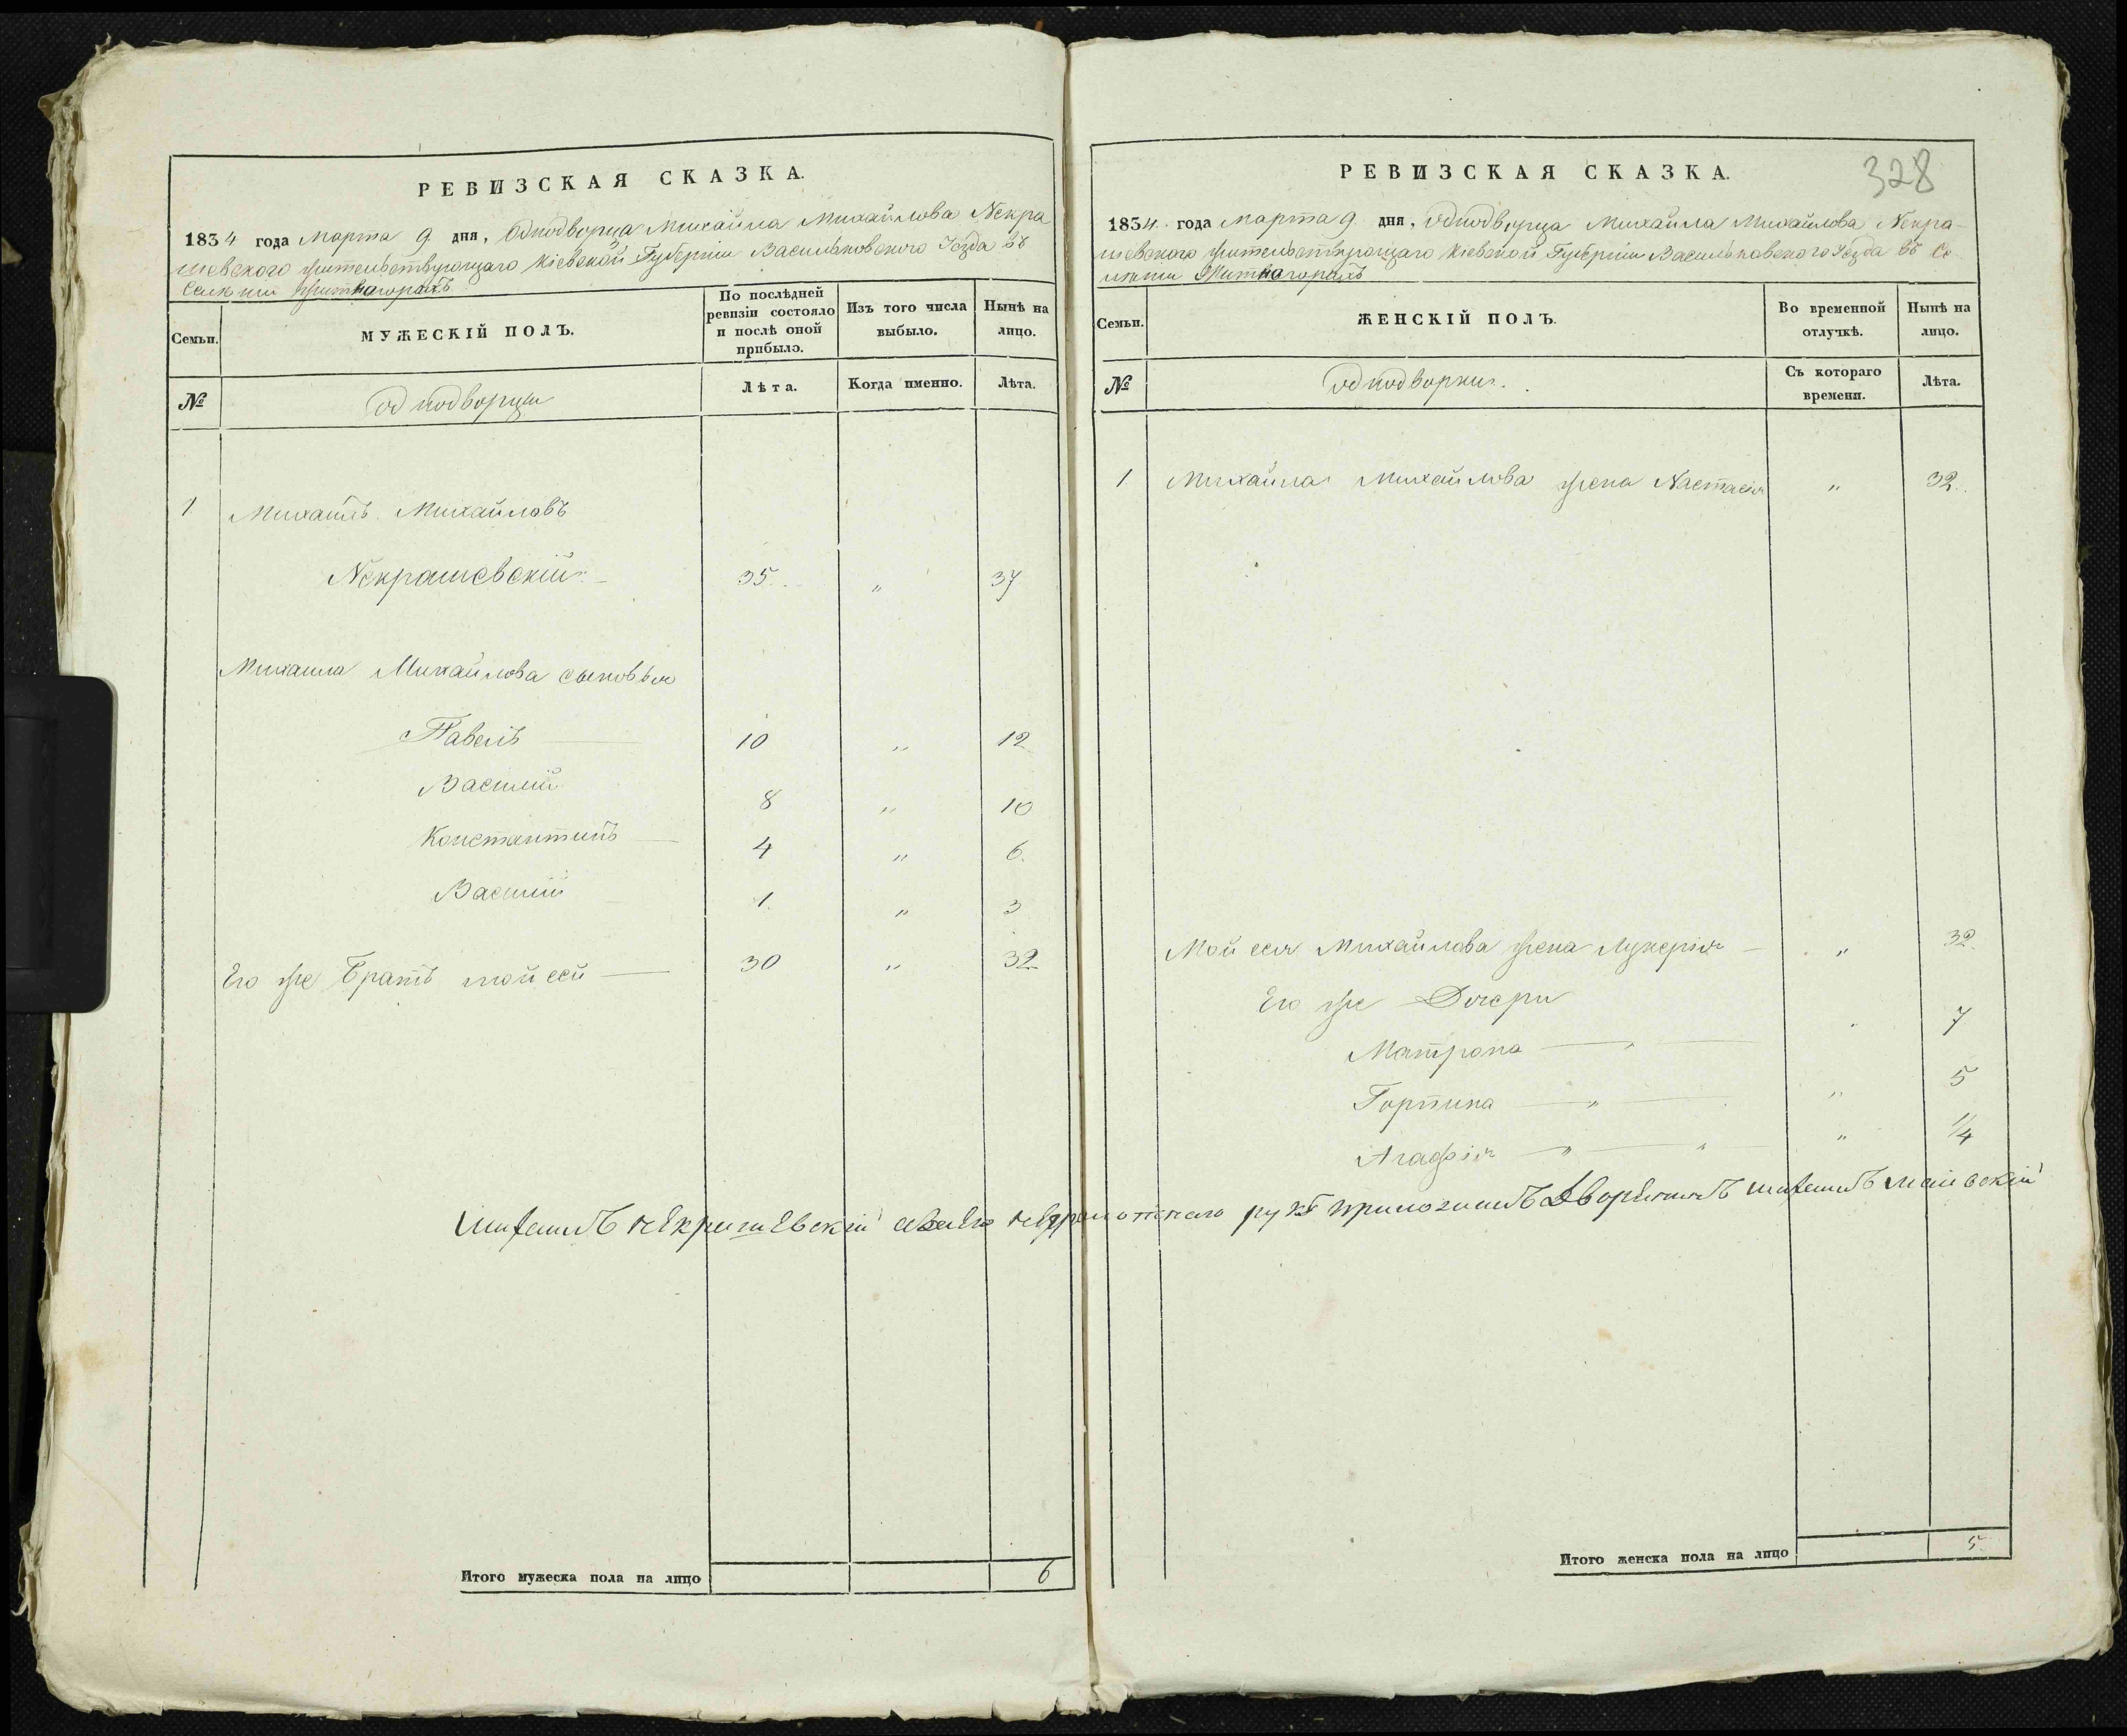 РЕВИЗСКАЯ СКАЗКА.
1834 года Марта 9 дня, Однодворца Михайла Михайлова Некра
шевского жительствующаго Кіевской Губерніи Васильковского Уезда въ
Селеніи Житнагорахъ
Семьи.
МУЖЕСКІЙ ПОЛЪ.
По послѣдней
ревизіи состояло
и послѣ оной
прибыло.
Изъ того числа
выбыло.
Нынѣ на
лицо.
№
однодворцы
Лѣта.
Когда именно.
Лѣта.
1 Михаилъ Михайловъ
Некрашевскій 35 „ 37
Михаила Михайлова сыновья
Павелъ 10 „ 12
Василій 8 „ 10
Константинъ 4 „ 6
Василій 1 „ 3
Его же Братъ мойсей 30 „ 32
Итого мужеска пола на лицо 6
328
РЕВИЗСКАЯ СКАЗКА.
1834 года марта 9 дня, однодворца Михайла Михайлова Некра-
шевского жительствующаго Кіевской Губерніи Васильковского Уезда въ Се
леніи Житнагорахъ
Семьи.
ЖЕНСКІЙ ПОЛЪ.
Во временной
отлучкѣ.
Нынѣ на
лицо.
№
однодворки
Съ котораго
времени.
Лѣта.
1 Михайла Михайлова жена Настасія „ 32
Мойсея Михайлова жена Лукерія „ 32
Его же Дочери
Матрона „ 7
Горпина „ 5
Агафія „ 1/4
Михаилъ Некрашевскій аза его неграмотнаго руку приложилъ Дворянинъ Михаилъ
Итого женска пола на лицо 5